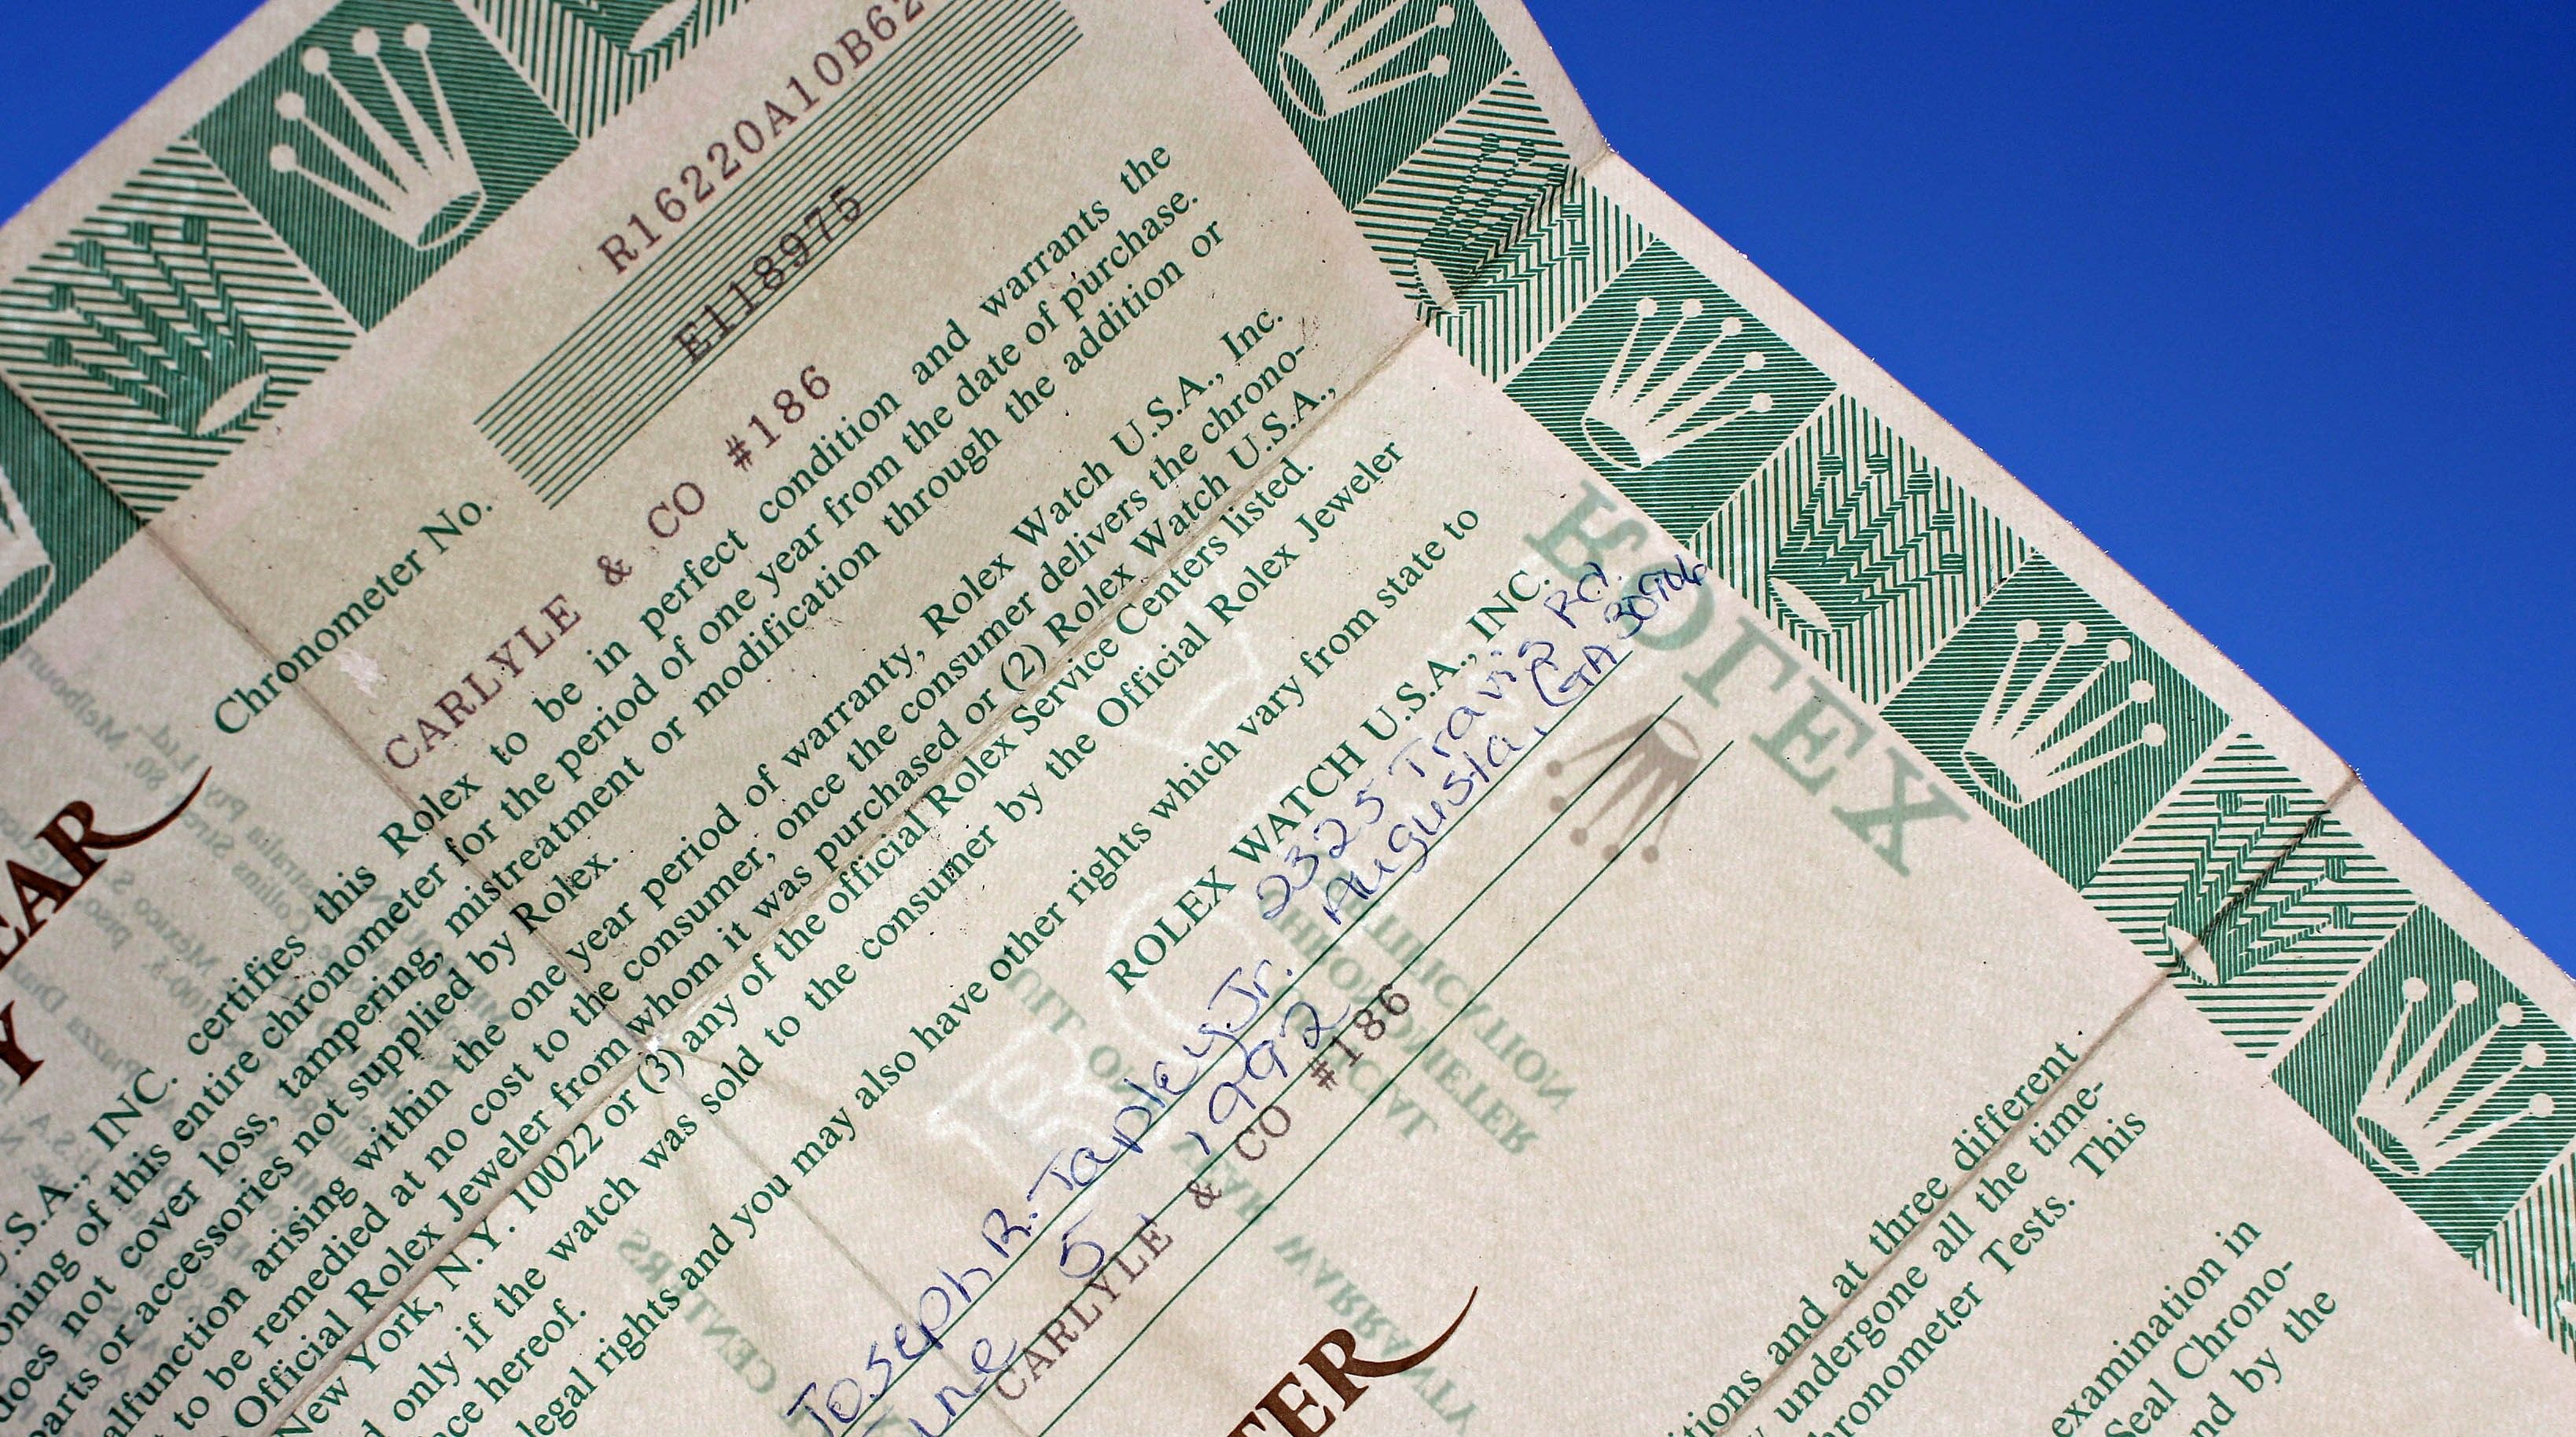 R16220A10B62
Chronometer No. E118975
CARLYLE & CO #186
U.S.A., INC. certifies this Rolex to be in perfect condition and warrants the
of this entire chronometer for the period of one year from the date of purchase.
does not cover loss, tampering, mistreatment or modification through the addition or
parts or accessories not supplied by Rolex.
arising within the one year period of warranty, Rolex Watch U.S.A., Inc.
to be remedied at no cost to the consumer, once the consumer delivers the chrono-
Official Rolex Jeweler from whom it was purchased or (2) Rolex Watch U.S.A.,
New York, N.Y. 10022 or (3) any of the official Rolex Service Centers listed.
only if the watch was sold to the consumer by the Official Rolex Jeweler
hereof.
legal rights and you may also have other rights which vary from state to
ROLEX WATCH U.S.A., INC.
2325 Travis Rd.
Joseph R. Tapley Jr. Augusta, GA
5, 1992
CARLYLE & CO #186
and at three different
undergone all the time-
Tests. This
examination in
Seal Chrono-
by the
ROLEX